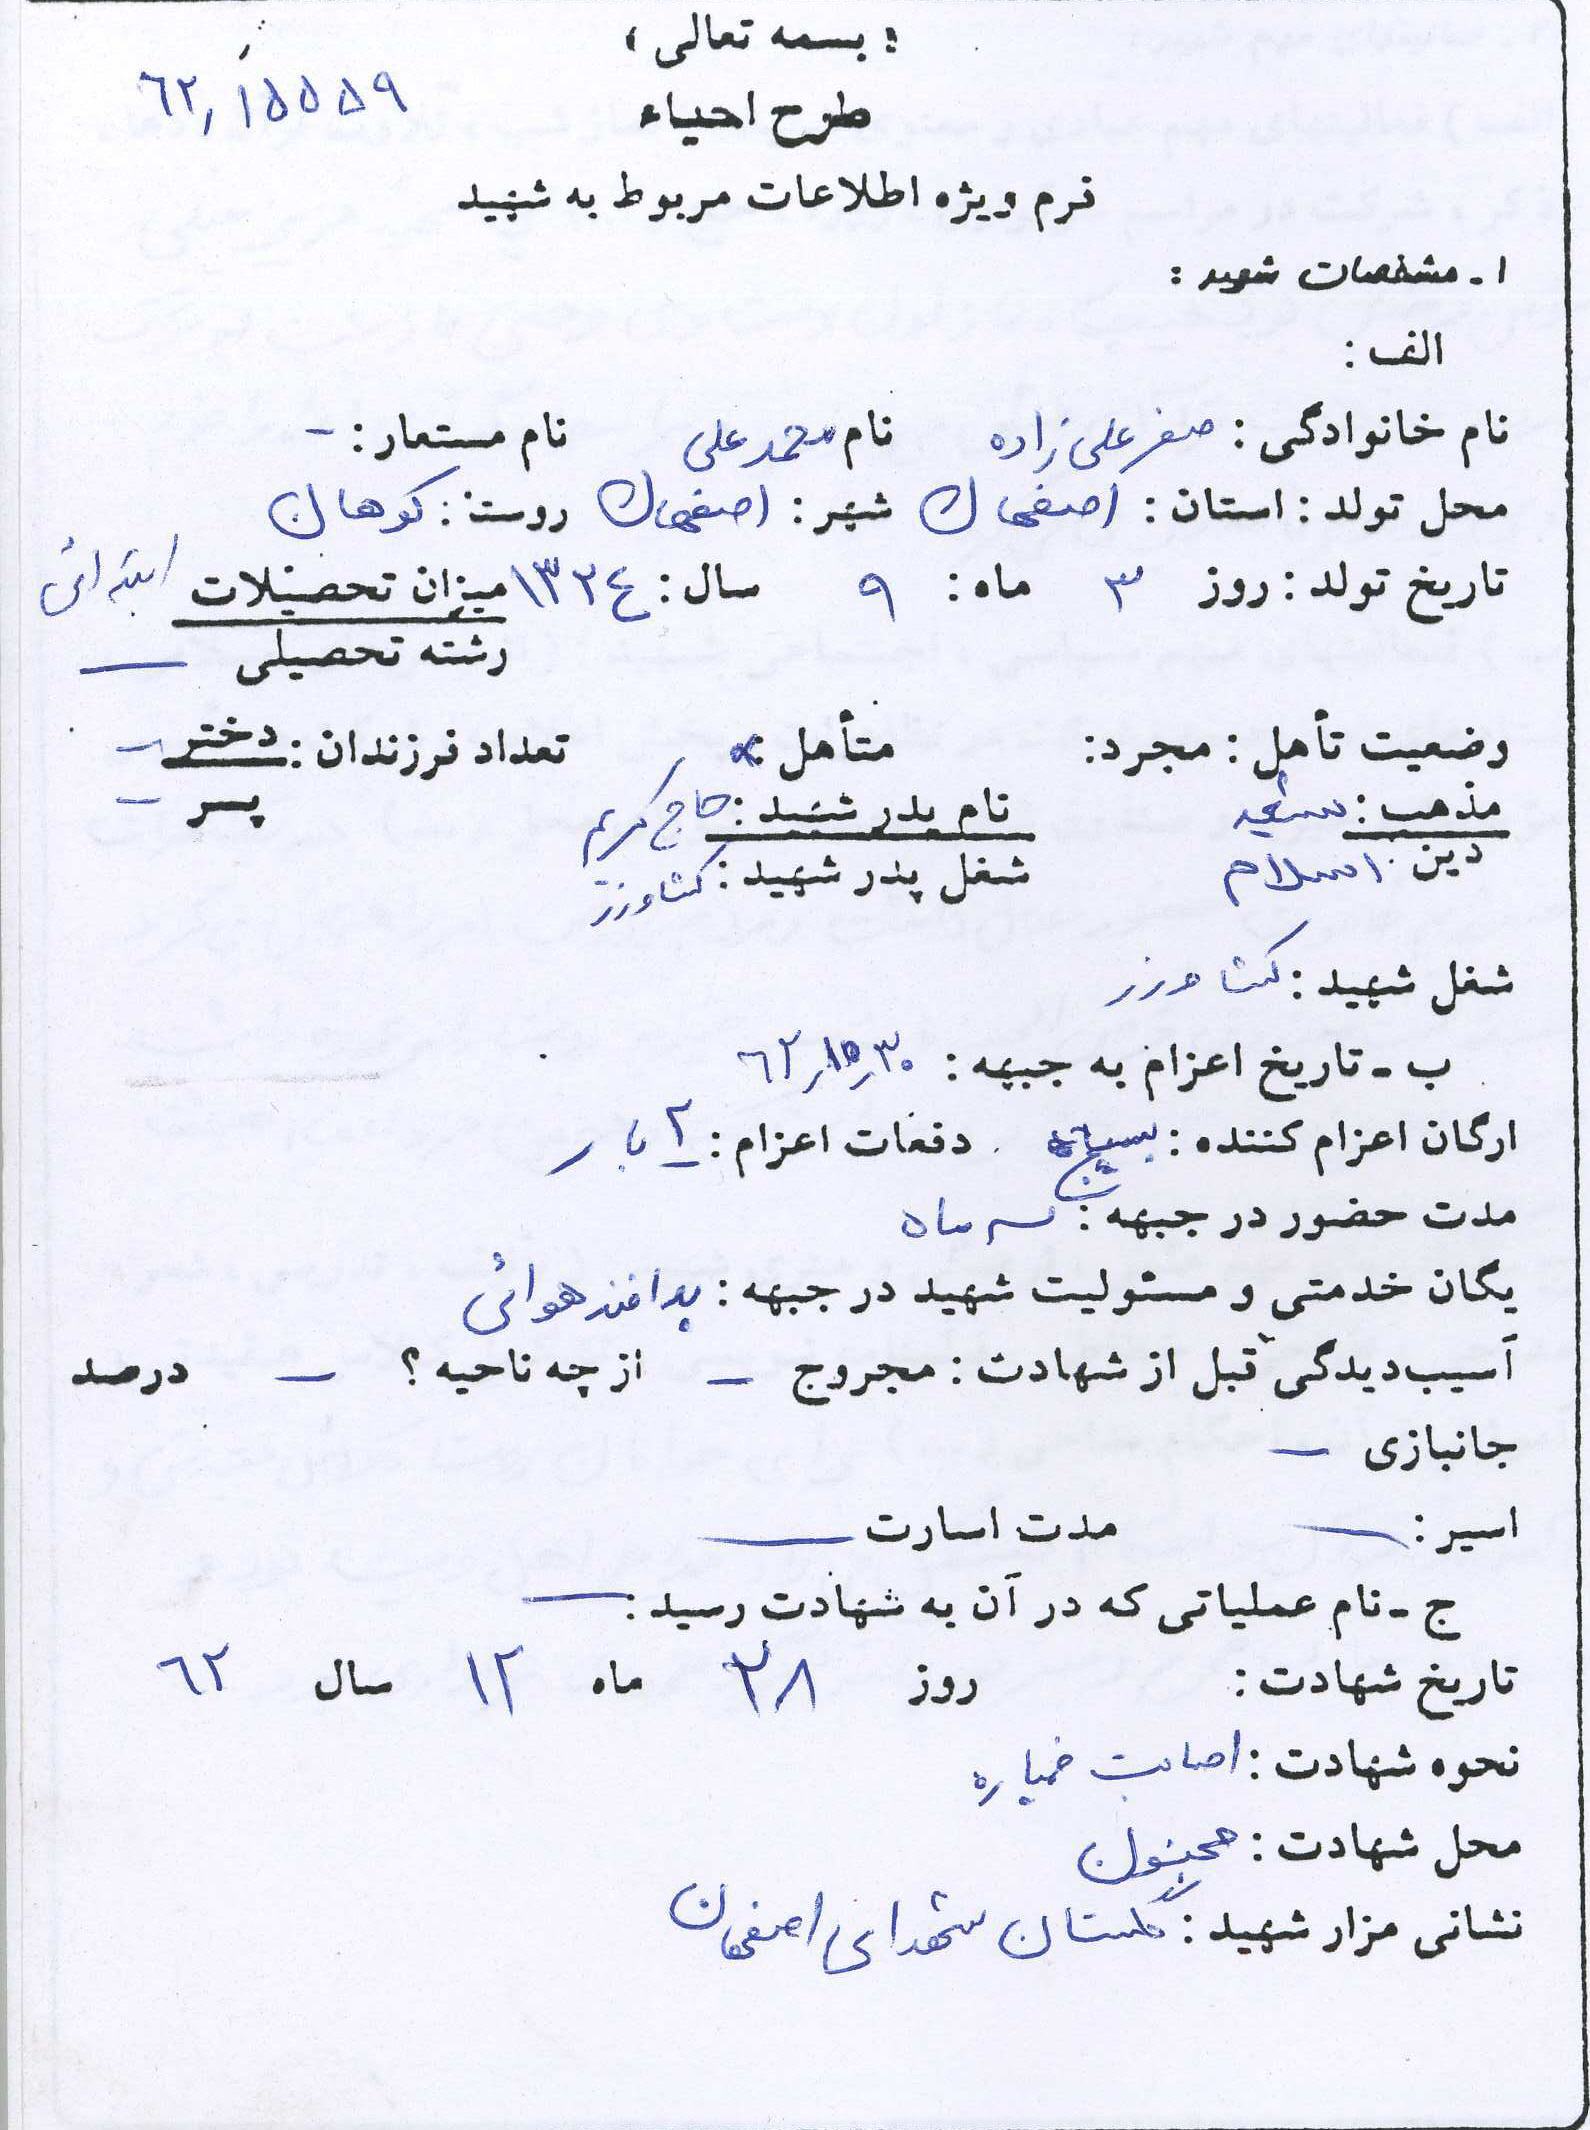 « بسمه تعالی »
۶۲٫۱۵۵۵۹
طرح احیاء
فرم ویژه اطلاعات مربوط به شهید
۱ـ مشخصات شهید :
الف :
نام خانوادگی : صفرعلی زاده نام محمد علی نام مستعار : -
محل تولد : استان : اصفهان شهر : اصفهان روستا : کوهان
تاریخ تولد : روز ۳ ماه : ۹ سال : ۱۳۲۴ میزان تحصیلات ابتدائی
رشته تحصیلی —
وضعیت تأهل : مجرد : متأهل : × تعداد فرزندان : دختر -
پسر -
مذهب : شیعه نام پدر شهید : حاج کریم
دین : اسلام شغل پدر شهید : کشاورز
شغل شهید : کشاورز
ب ـ تاریخ اعزام به جبهه : ۶۲٫۱۰٫۳۰
ارگان اعزام کننده : بسیج دفعات اعزام : ۲ بار
مدت حضور در جبهه : سه ماه
یگان خدمتی و مسئولیت شهید در جبهه : پدافند هوائی
آسیب دیدگی قبل از شهادت : مجروح - از چه ناحیه ؟ - درصد
جانبازی -
اسیر : — مدت اسارت —
ج ـ نام عملیاتی که در آن به شهادت رسید : —
تاریخ شهادت : روز ۲۸ ماه ۱۲ سال ۶۲
نحوه شهادت : اصابت خمپاره
محل شهادت : مجنون
نشانی مزار شهید : گلستان شهدای اصفهان